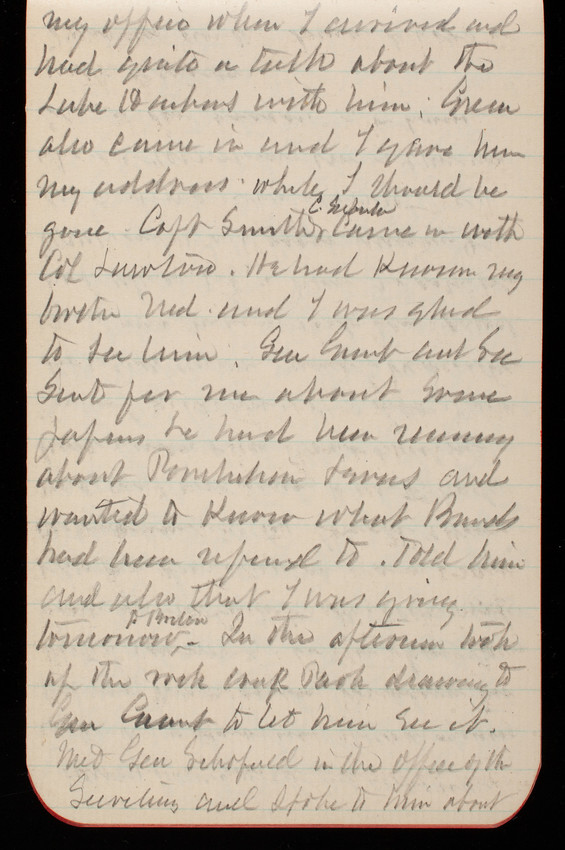 my office when I arrived and
had quite a talk about the
Lake Harbors with him. Green
also came in and I gave him
my address while I should be
gone. Capt Smith came in with
Col. He had known my
brother Ned and I was glad
to see him. Gen Grant
sent for me about some
papers he had been
about and
wanted to know what Bonds
had been refused to. Told him
and also that I was going
tomorrow. In the afternoon took
up the Park drawing to
Gen to let him see it.
Met Gen Schofield in the office of the
and spoke to him about